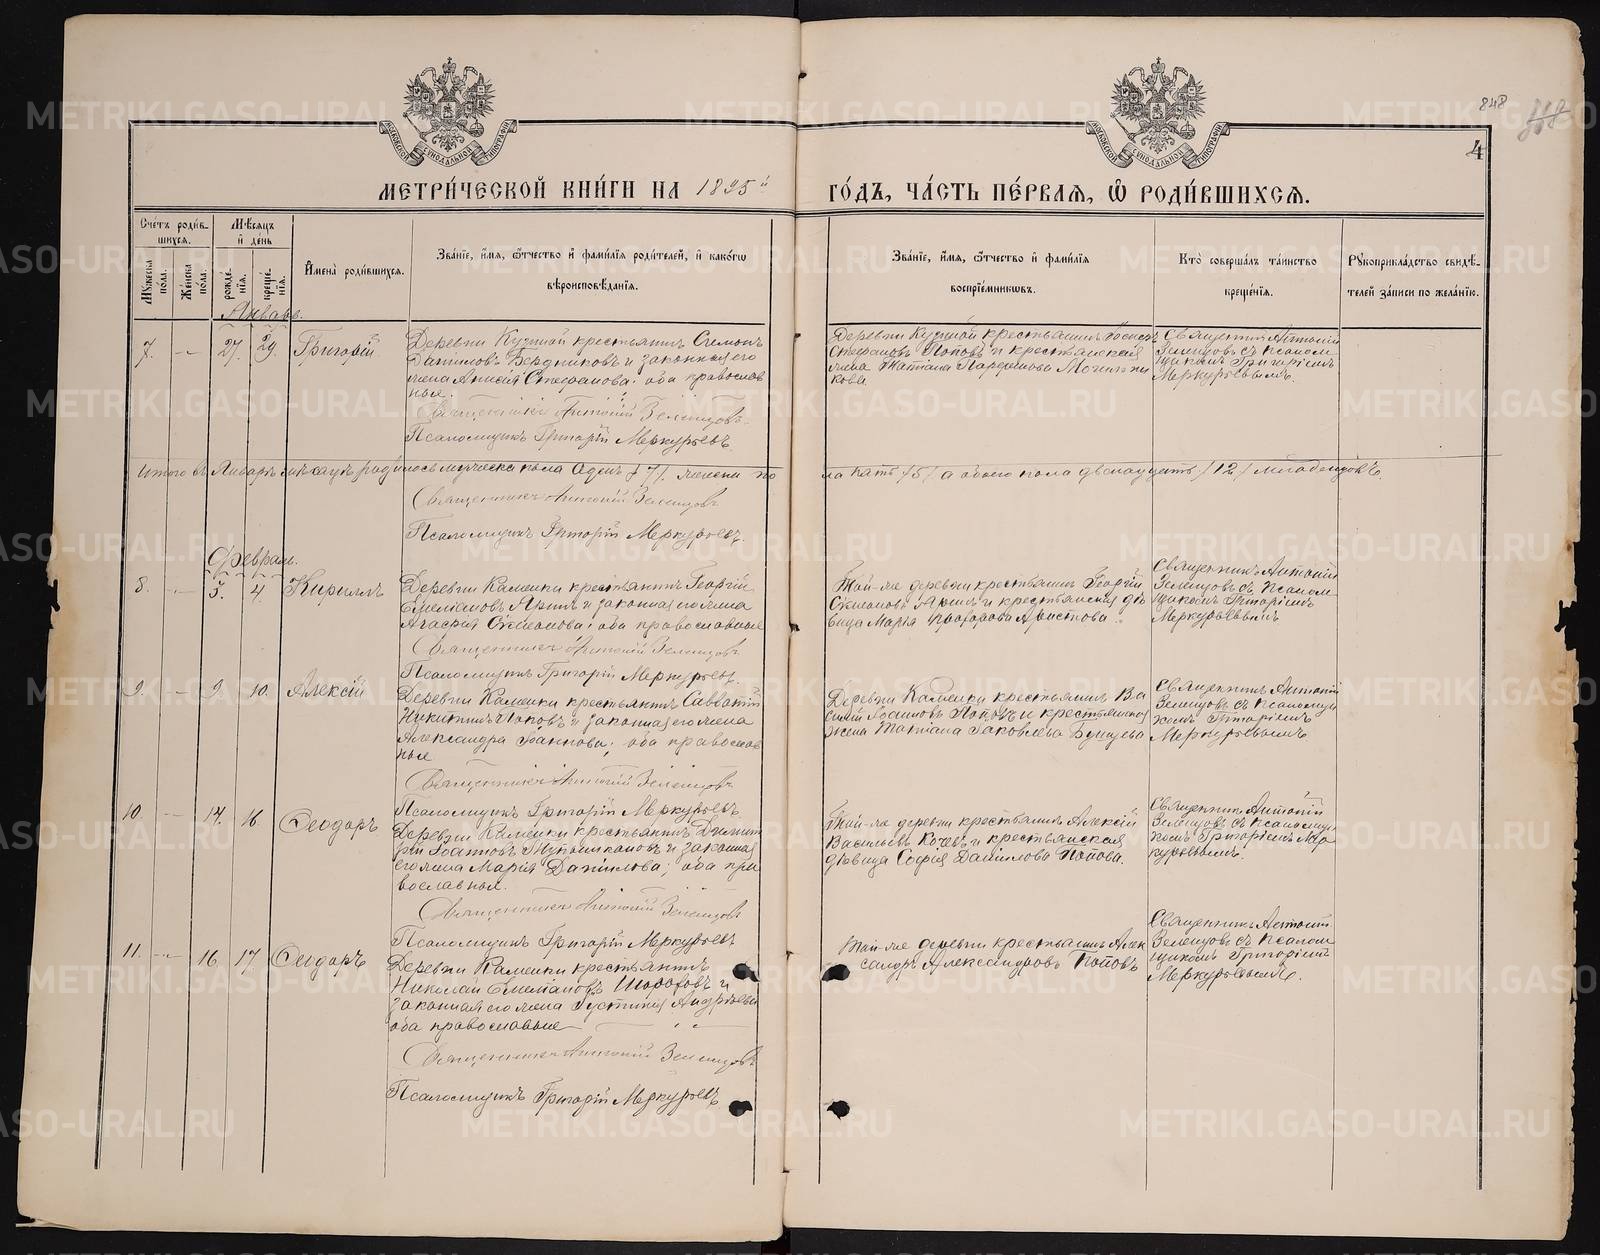 848
4
МОСКОВСКОЙ СѴНОДАЛЬНОЙ ТИПОГРАФІИ
МОСКОВСКОЙ СѴНОДАЛЬНОЙ ТИПОГРАФІИ
МЕТРИ́ЧЕСКОЙ КНИ́ГИ НА 1895й ГО́ДЪ, ЧА́СТЬ ПЕ́РВАѦ, Ѽ РОДИ́ВШИХСѦ.
Сче́тъ роди́в-
шихсѧ.
Мꙋжеска по́ла.
Же́нска по́ла.
Мѣ́сѧцъ
и҆ де́нь
рожде́нїѧ.
креще́нїѧ.
И҆мена̀ роди́вшихсѧ.
Зва́нїе, и҆́мѧ, ѻ҆́тчество и҆ фами́лїѧ роди́телей, и҆ како́гѡ
вѣроисповѣ́данїѧ.
Зва́нїе, и҆́мѧ, ѻ҆́тчество и҆ фами́лїѧ
воспрїе́мникѡвъ.
Кто̀ соверша́лъ та́инство
креще́нїѧ.
Рꙋкоприкла́дство свидѣ́-
телей за́писи по жела́нїю.
Январь.
7. — 27. 29. Григорій
Деревни Кузиной крестьянинъ Симеонъ
Даниловъ Бердниковъ и законная его
жена Анисія Стефанова; оба православ
ные.
Священникъ Антоній Зеленцовъ
Псаломщикъ Григорій Меркурьевъ.
Деревни Кузиной крестьянинъ
Стефановъ Поповъ и крестьянская
жена Татіана Парфенова Могильни
кова
Священникъ Антоній
Зеленцовъ съ псалом
щикомъ Григоріемъ
Меркурьевымъ.
Итого въ Январѣ мѣсяцѣ родилось мужеска пола семь /7/ женска по
ла пять /5/ а обоего пола двѣнадцать /12/ младенцовъ.
Священникъ Антоній Зеленцовъ
Псаломщикъ Григорій Меркурьевъ.
Февраль.
8. — 3. 4. Кириллъ
Деревни Каменки крестьянинъ Георгій
и законная его жена
оба православные
Священникъ Антоній Зеленцовъ
Псаломщикъ Григорій Меркурьевъ.
Той-же деревни крестьянинъ Георгій
и крестьянская дѣ
вица Марія
Священникъ Антоній
Зеленцовъ съ псалом
щикомъ Григоріемъ
Меркурьевымъ
9. — 9. 10. Алексій
Деревни Каменки крестьянинъ Савватій
Никитинъ Поповъ и законная его жена
Александра Іоаннова; оба православ
ные
Священникъ Антоній Зеленцовъ
Псаломщикъ Григорій Меркурьевъ
Деревни Каменки крестьянинъ Ва
силій Іоанновъ Поповъ и крестьянская
жена Татіана Іаковлева
Священникъ Антоній
Зеленцовъ съ псаломщи
комъ Григоріемъ
Меркурьевымъ
10. — 14. 16. Ѳеодоръ
Деревни Каменки крестьянинъ Димит
рій Іоанновъ и законная
его жена Марія Данилова; оба пра
вославные.
Священникъ Антоній Зеленцовъ
Псаломщикъ Григорій Меркурьевъ
Той-же деревни крестьянинъ Алексій
Васильевъ Кочевъ и крестьянская
дѣвица Софія Данилова Попова.
Священникъ Антоній
Зеленцовъ съ псаломщи
комъ Григоріемъ Мер
курьевымъ.
11. — 16. 17. Ѳеодоръ
Деревни Каменки крестьянинъ
Николай и
законная его жена Іустинія Андреева
оба православные
Священникъ Антоній Зеленцовъ
Псаломщикъ Григорій Меркурьевъ
Той-же деревни крестьянинъ Алек
сандръ Александровъ Поповъ
Священникъ Антоній
Зеленцовъ съ псалом
щикомъ Григоріемъ
Меркурьевымъ.
METRIKI.GASO-URAL.RU